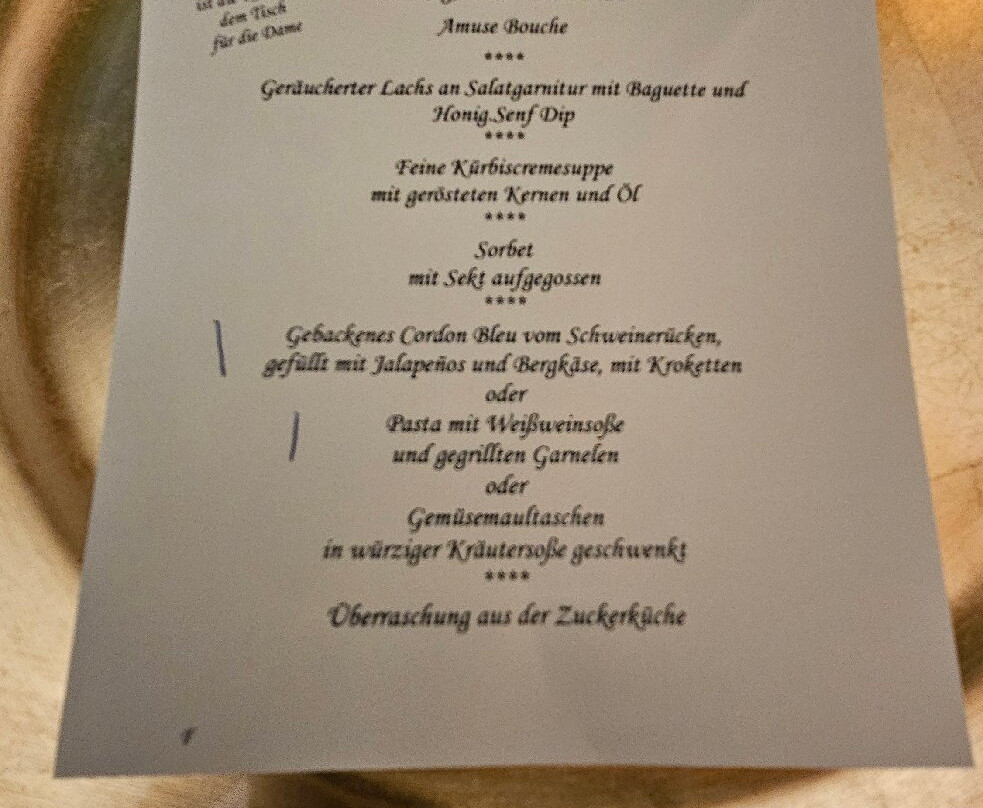 ist
dem Tisch
für die Dame
Amuse Bouche
****
Geräucherter Lachs an Salatgarnitur mit Baguette und
Honig.Senf Dip
****
Feine Kürbiscremesuppe
mit gerösteten Kernen und Öl
****
Sorbet
mit Sekt aufgegossen
****
Gebackenes Cordon Bleu vom Schweinerücken,
gefüllt mit Jalapeños und Bergkäse, mit Kroketten
oder
Pasta mit Weißweinsoße
und gegrillten Garnelen
oder
Gemüsemaultaschen
in würziger Kräutersoße geschwenkt
****
Überraschung aus der Zuckerküche